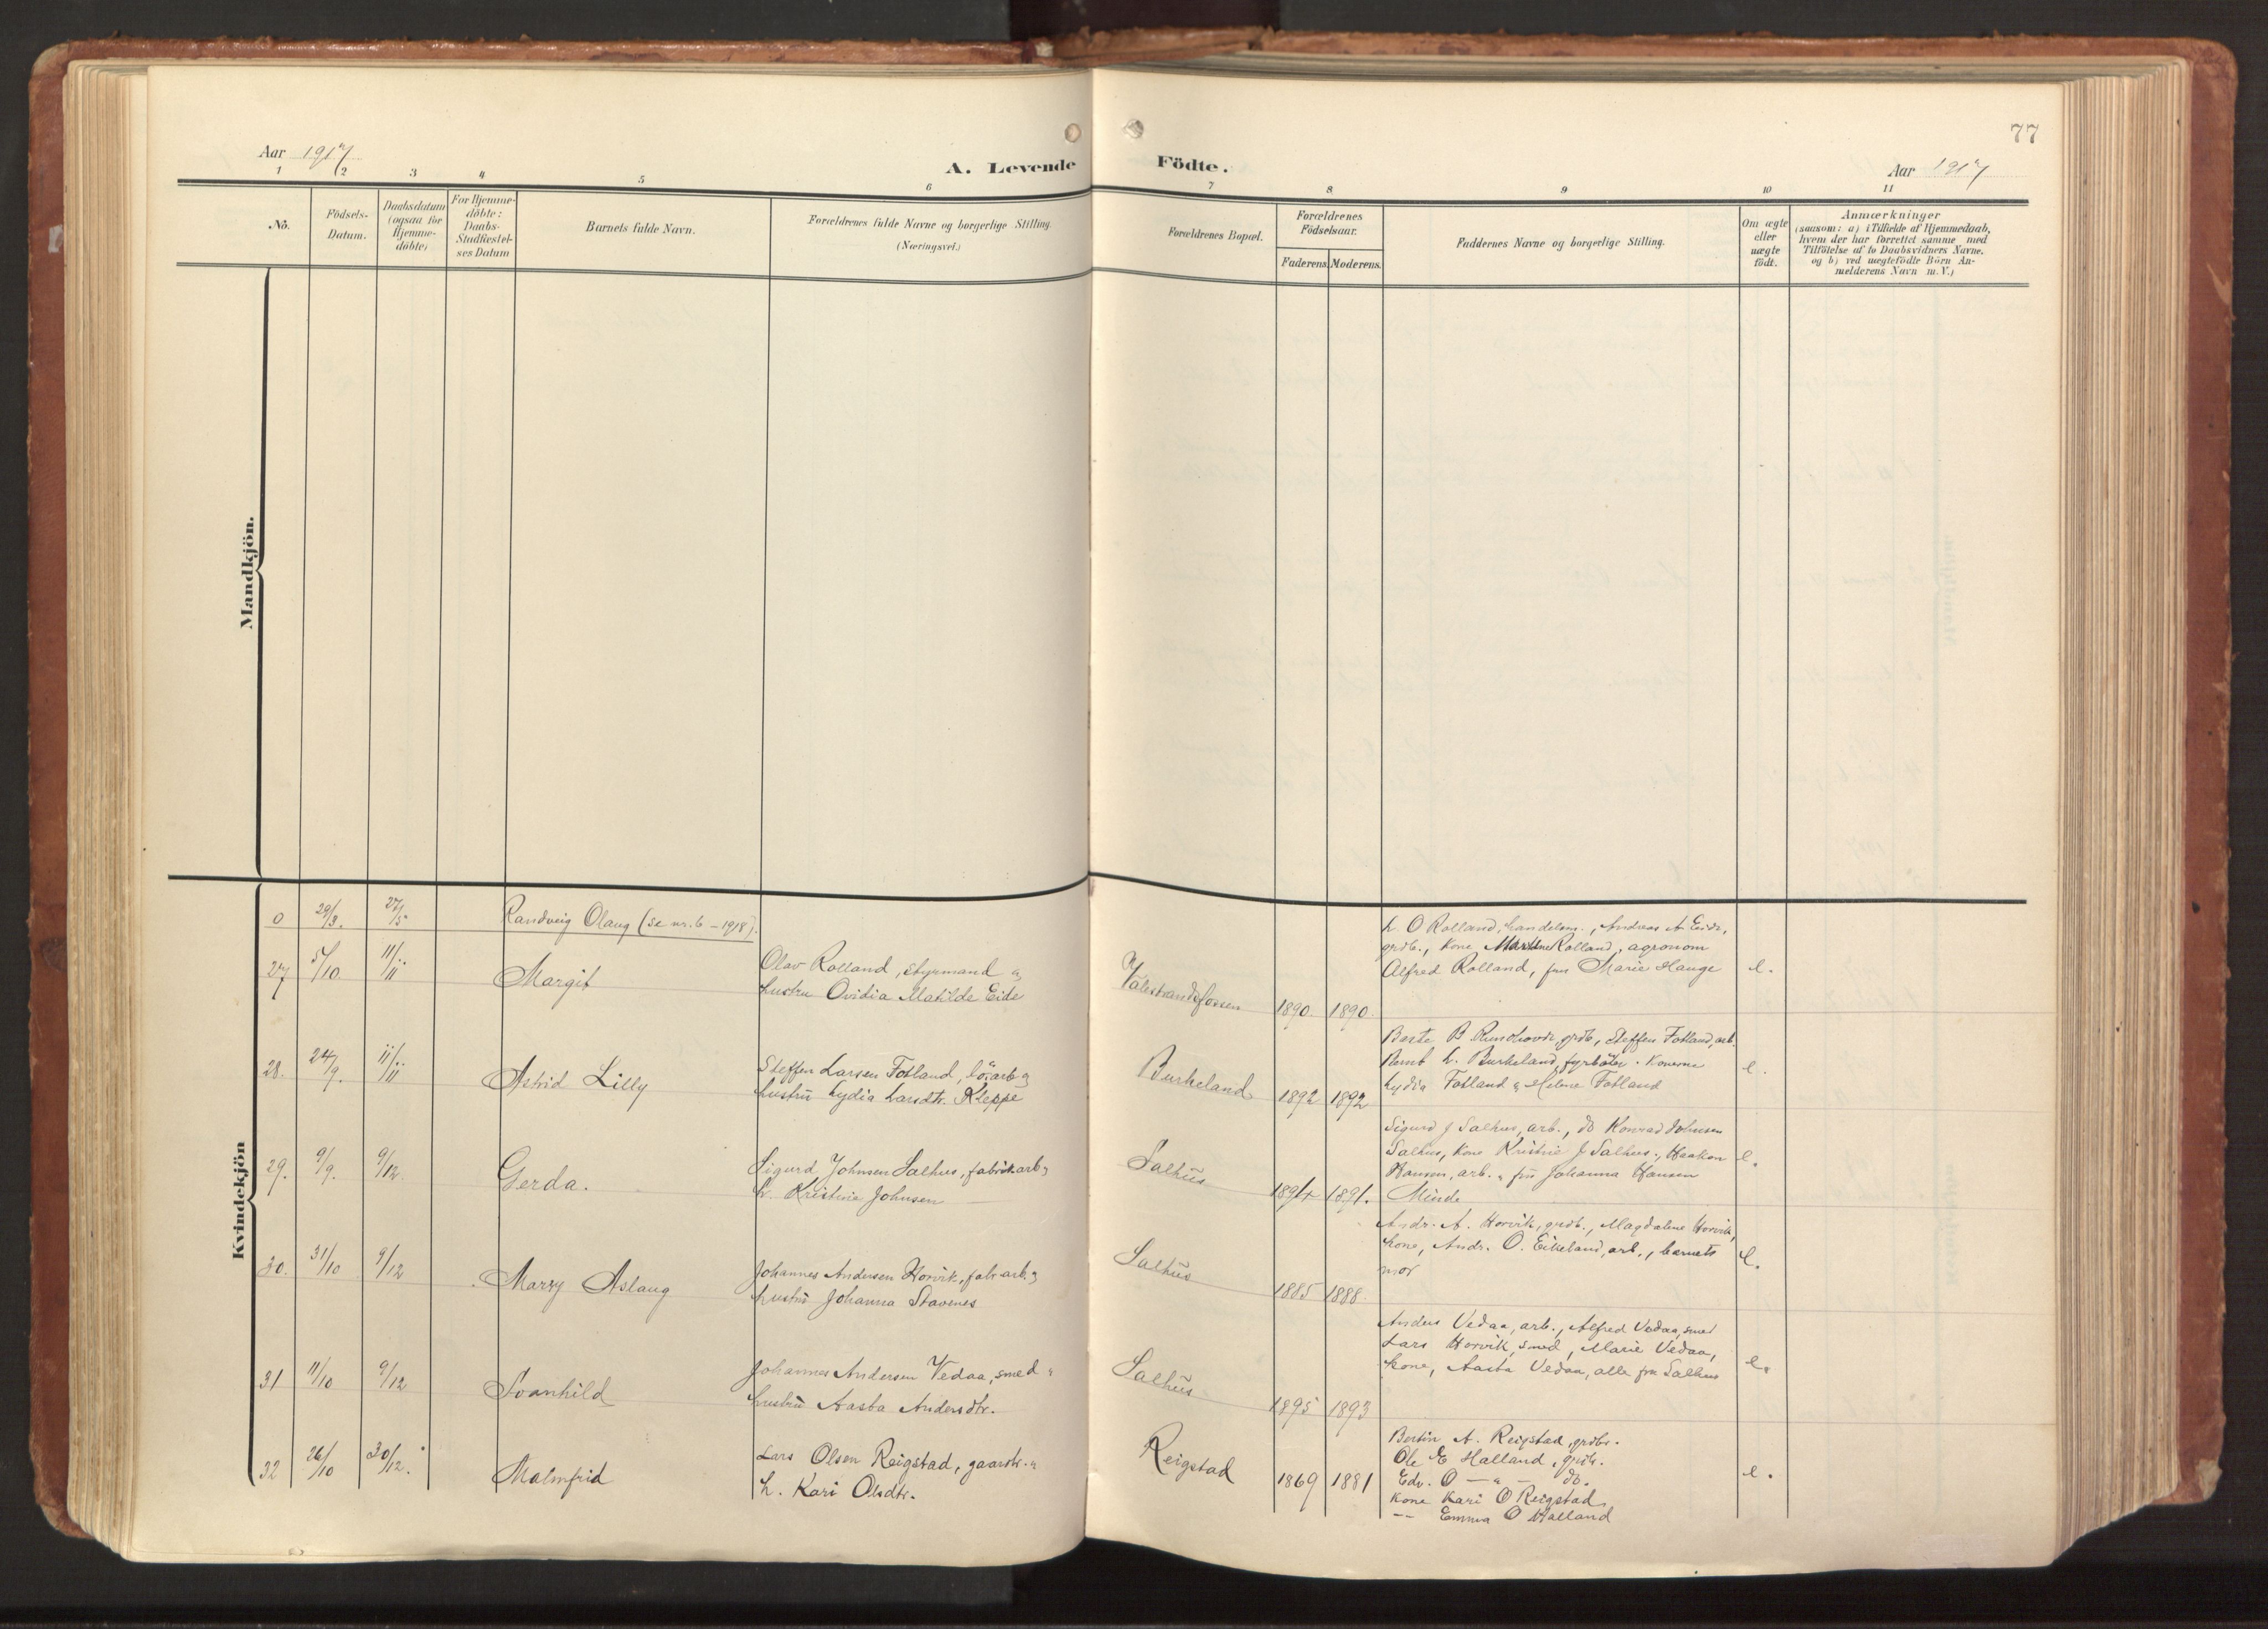 77
Aar 1917
A. Levende Födte.
Aar 1917
1 2 3 4 5 6 7 8 9 10 11
No.
Födsels-
Datum.
Daabsdatum
(ogsaa for
Hjemme-
döbte)
For Hjemme-
döbte:
Daabs-
Stadfæstel-
ses Datum
Barnets fulde Navn.
Forældrenes fulde Navne og borgerlige Stilling.
(Næringsvei.)
Forældrenes Bopæl.
Forældrenes
Födselsaar.
Faderens. Moderens.
Faddernes Navne og borgerlige Stilling.
Om ægte
eller
uægte
födt.
Anmærkninger
(saasom: a) i Tilfælde af Hjemmedaab,
hvem der har forrettet samme med
Tilföielse af to Daabsvidners Navne.
og b) ved uægtefödte Börn An-
melderens Navn m. V.)
Mandkjön.
Kvindekjön
0 29/3. 27/5 Randveig Olaug (se nr. 6 - 1918).
27 5/10. 11/11 Margit
Olav Rolland, styrmand "
hustru Ovidia Matilde Eide
Valestrandsfossen
1890. 1890.
L O Rolland, handelsm., Andreas A Eide,
grdb., kone Rolland, agronom
Alfred Rolland, frk Marie Hauge
e.
28. 24/9. 11/11 Astrid Lilly
Steffen Larsen Fotland, arb
hustru Lydia Larsdtr. Kleppe
Burkeland
1892 1892
B grdb, Steffen Fotland, arb.
L. Burkeland, fyrböter. Konerne
Lydia Fotland " Helene Fotland
e.
29. 9/9. 9/12. Gerda.
Sigurd Johnsen Salhus, fabrikarb
h. Kristine Johnsen
Salhus
1894 1891.
Sigurd J Salhus, arb., do Konrad Johnsen
Salhus, kone Kristine J Salhus, Haakon
Hansen, arb. " frk Johanna Hansen
Minde
e.
30. 31/10 9/12 Marry Aslaug
Johannes Andersen Horvik, fabr.arb.
hustru Johanna Stavenes
Salhus
1885 1888.
Andr. A. Horvik, grdb., Magdalene Horvik,
kone, Andr. O. Eikeland, arb., barnets
mor
e.
31 11/10 9/12 Svanhild
Johannes Andersen Vedaa, smed "
hustru Aasta Andersdtr.
Salhus
1895 1893
Anders Vedaa, arb., Alfred Vedaa, smed
Lars Horvik, smed, Marie Vedaa,
kone, Aasta Vedaa, alle fra Salhus
e.
32 26/10 30/12. Malmfrid
Lars Olsen Reigstad, gaardbr. "
h. Kari Olsdtr.
Reigstad
1869 1881
Bertin A. Reigstad, grdbr.
Ole E Halland, grdb.
Edv. O — " — do.
kone Kari O Reigstad,
-- Emma O Halland
e.